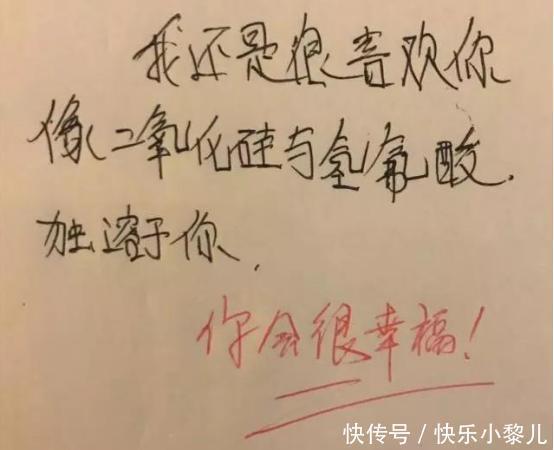 我还是很喜欢你
像二氧化硅与氢氟酸.
独溶于你.
你会很幸福!
快传号/快乐小黎儿